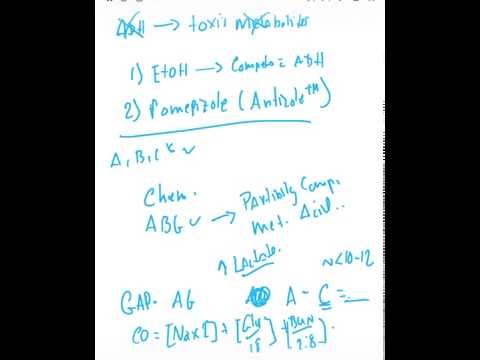 ADH → toxic metabolites
1) EtOH → Compete ADH
2) Fomepizole (Antizole™)
A, B, C
Chem.
ABG ✓ → Partially Comp.
met. Acid..
↑ Lactate.
N<10-12
GAP. AG A - C = __
CO = [Na x 2] + [Glu/18] + [BUN/2.8].